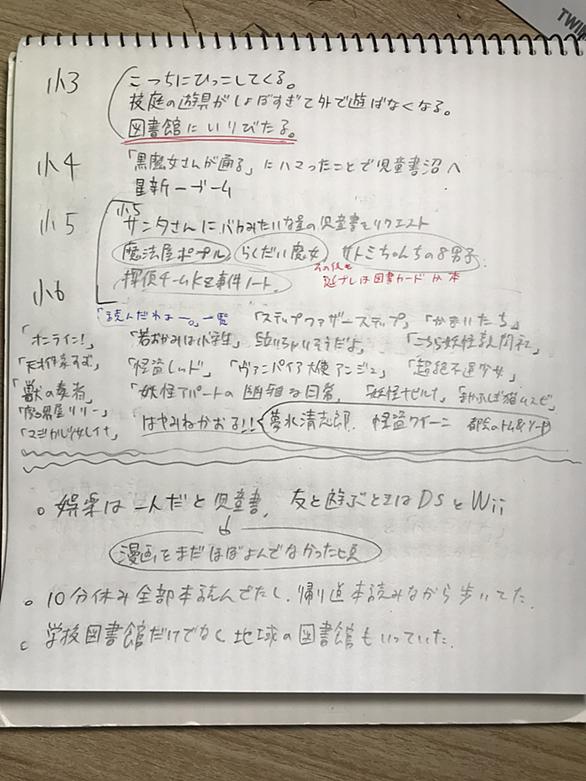 TWIN
小3
こっちにひっこしてくる。
校庭の遊具がしょぼすぎて外で遊ばなくなる。
図書館にいりびたる。
小4
「黒魔女さんが通る」にハマったことで児童書沼へ
星新一ブーム
小5
小5
サンタさんにバカみたいな量の児童書をリクエスト
魔法屋ポプル らくだい魔女 サトミちゃんちの8男子
探偵チームKZ事件ノート
その後も
誕プレは図書カードか本
小6
「読んだねー。」一覧 「ステップファザーステップ」 「かまいたち」
「オンライン!」 「若おかみは小学生」 「こちら妖怪新聞社」
「怪盗レッド」 「ヴァンパイア大使アンジュ」 「超絶不運少女」
「獣の奏者」 「妖怪アパートの幽雅な日常」 「妖怪ナビルナ」
「魔界屋リリー」
「マジカル少女レイナ」 はやみねかおる!! 夢水清志郎 怪盗クイーン 都会のトム&ソーヤ
○ 娯楽は一人だと児童書、友と遊ぶときはDSとWii
漫画もまだほぼよんでなかった頃
○ 10分休み全部本読んでたし、帰り道本読みながら歩いてた。
○ 学校図書館だけでなく地域の図書館もいっていた。